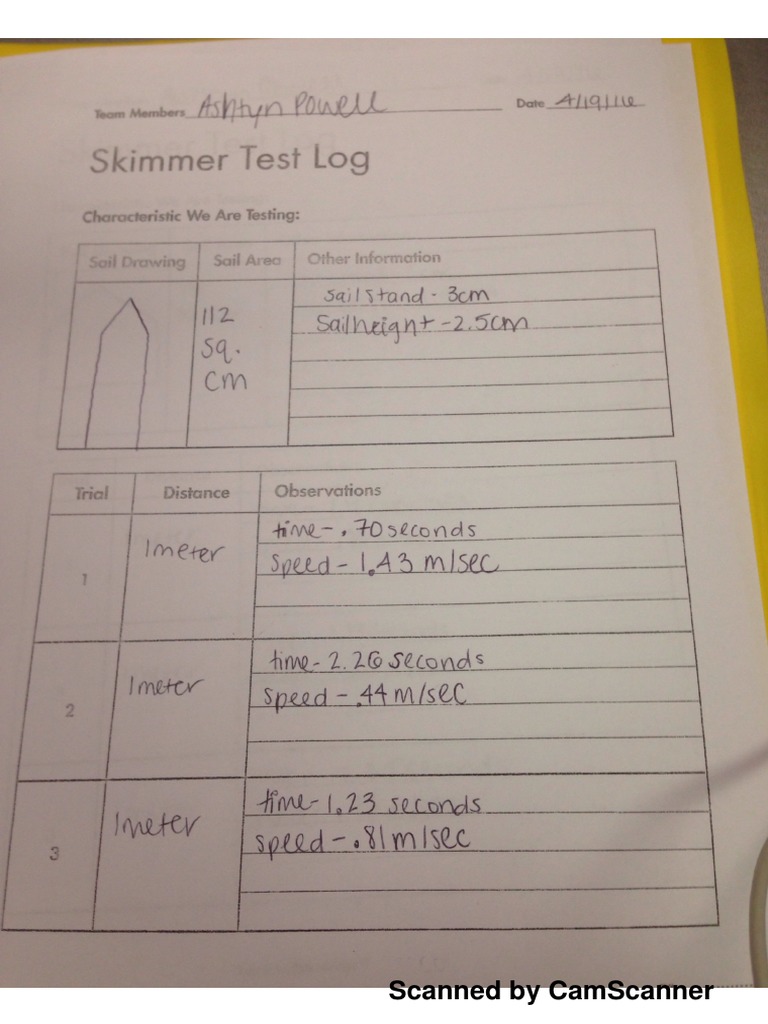 Team Members Ashtyn Powell Date 4/19/16
Skimmer Test Log
Characteristic We Are Testing:
Sail Drawing Sail Area Other Information
112
sq.
cm
sail stand - 3cm
Sail height - 2.5cm
Trial Distance Observations
1 1 meter
time - .70 seconds
speed - 1.43 m/sec
2 1 meter
time - 2.26 seconds
speed - .44 m/sec
3 1 meter
time - 1.23 seconds
speed - .81 m/sec
Scanned by CamScanner